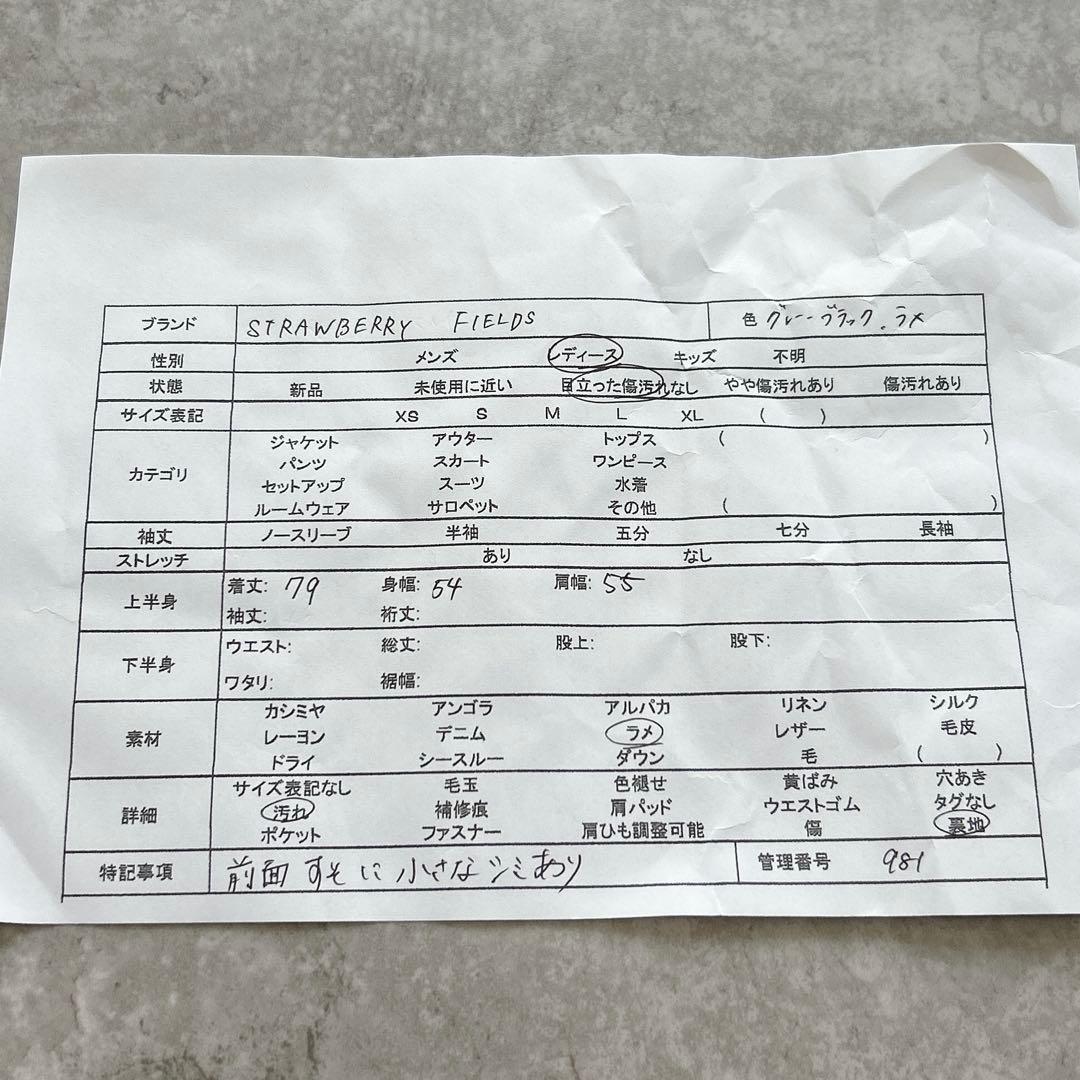 ブランド STRAWBERRY FIELDS 色 グレー・ブラック.ラメ
性別 メンズ レディース キッズ 不明
状態 新品 未使用に近い 目立った傷汚れなし やや傷汚れあり 傷汚れあり
サイズ表記 XS S M L XL ( )
カテゴリ ジャケット アウター トップス ( )
パンツ スカート ワンピース
セットアップ スーツ 水着
ルームウェア サロペット その他 ( )
袖丈 ノースリーブ 半袖 五分 七分 長袖
ストレッチ あり なし
上半身 着丈: 79 身幅: 54 肩幅: 55
袖丈: 裄丈:
下半身 ウエスト: 総丈: 股上: 股下:
ワタリ: 裾幅:
素材 カシミヤ アンゴラ アルパカ リネン シルク
レーヨン デニム ラメ レザー 毛皮
ドライ シースルー ダウン 毛 ( )
詳細 サイズ表記なし 毛玉 色褪せ 黄ばみ 穴あき
汚れ 補修痕 肩パッド ウエストゴム タグなし
ポケット ファスナー 肩ひも調整可能 傷 裏地
特記事項 前面すそに小さなシミあり 管理番号 981